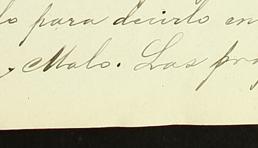 lo para decirlo en
y Malo. Las pro